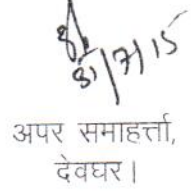 31/7/15
अपर समाहर्त्ता,
देवघर।